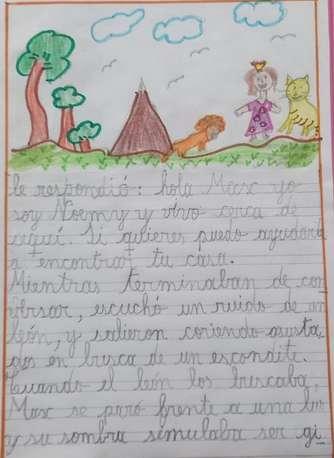 le respondió: hola Max yo
soy Noemy y vivo cerca de
aqui. Si quieres puedo ayudarte
a encontrar tu casa.
Mientras terminaban de con
versar, escuchó un ruido de un
león, y salieron coriendo asusta
dos en busca de un escondite.
Cuando el león los buscaba,
Max se paró frente a una luz
y su sombra simulaba ser gi